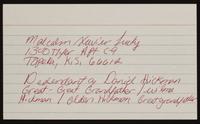 Malcolm Xavier
1300 Tyler Apt C9
Topeka, KS, 66612
Dependant of David Hickman
Great-Great Grandfather
Hickman / Hickman Great grandfather